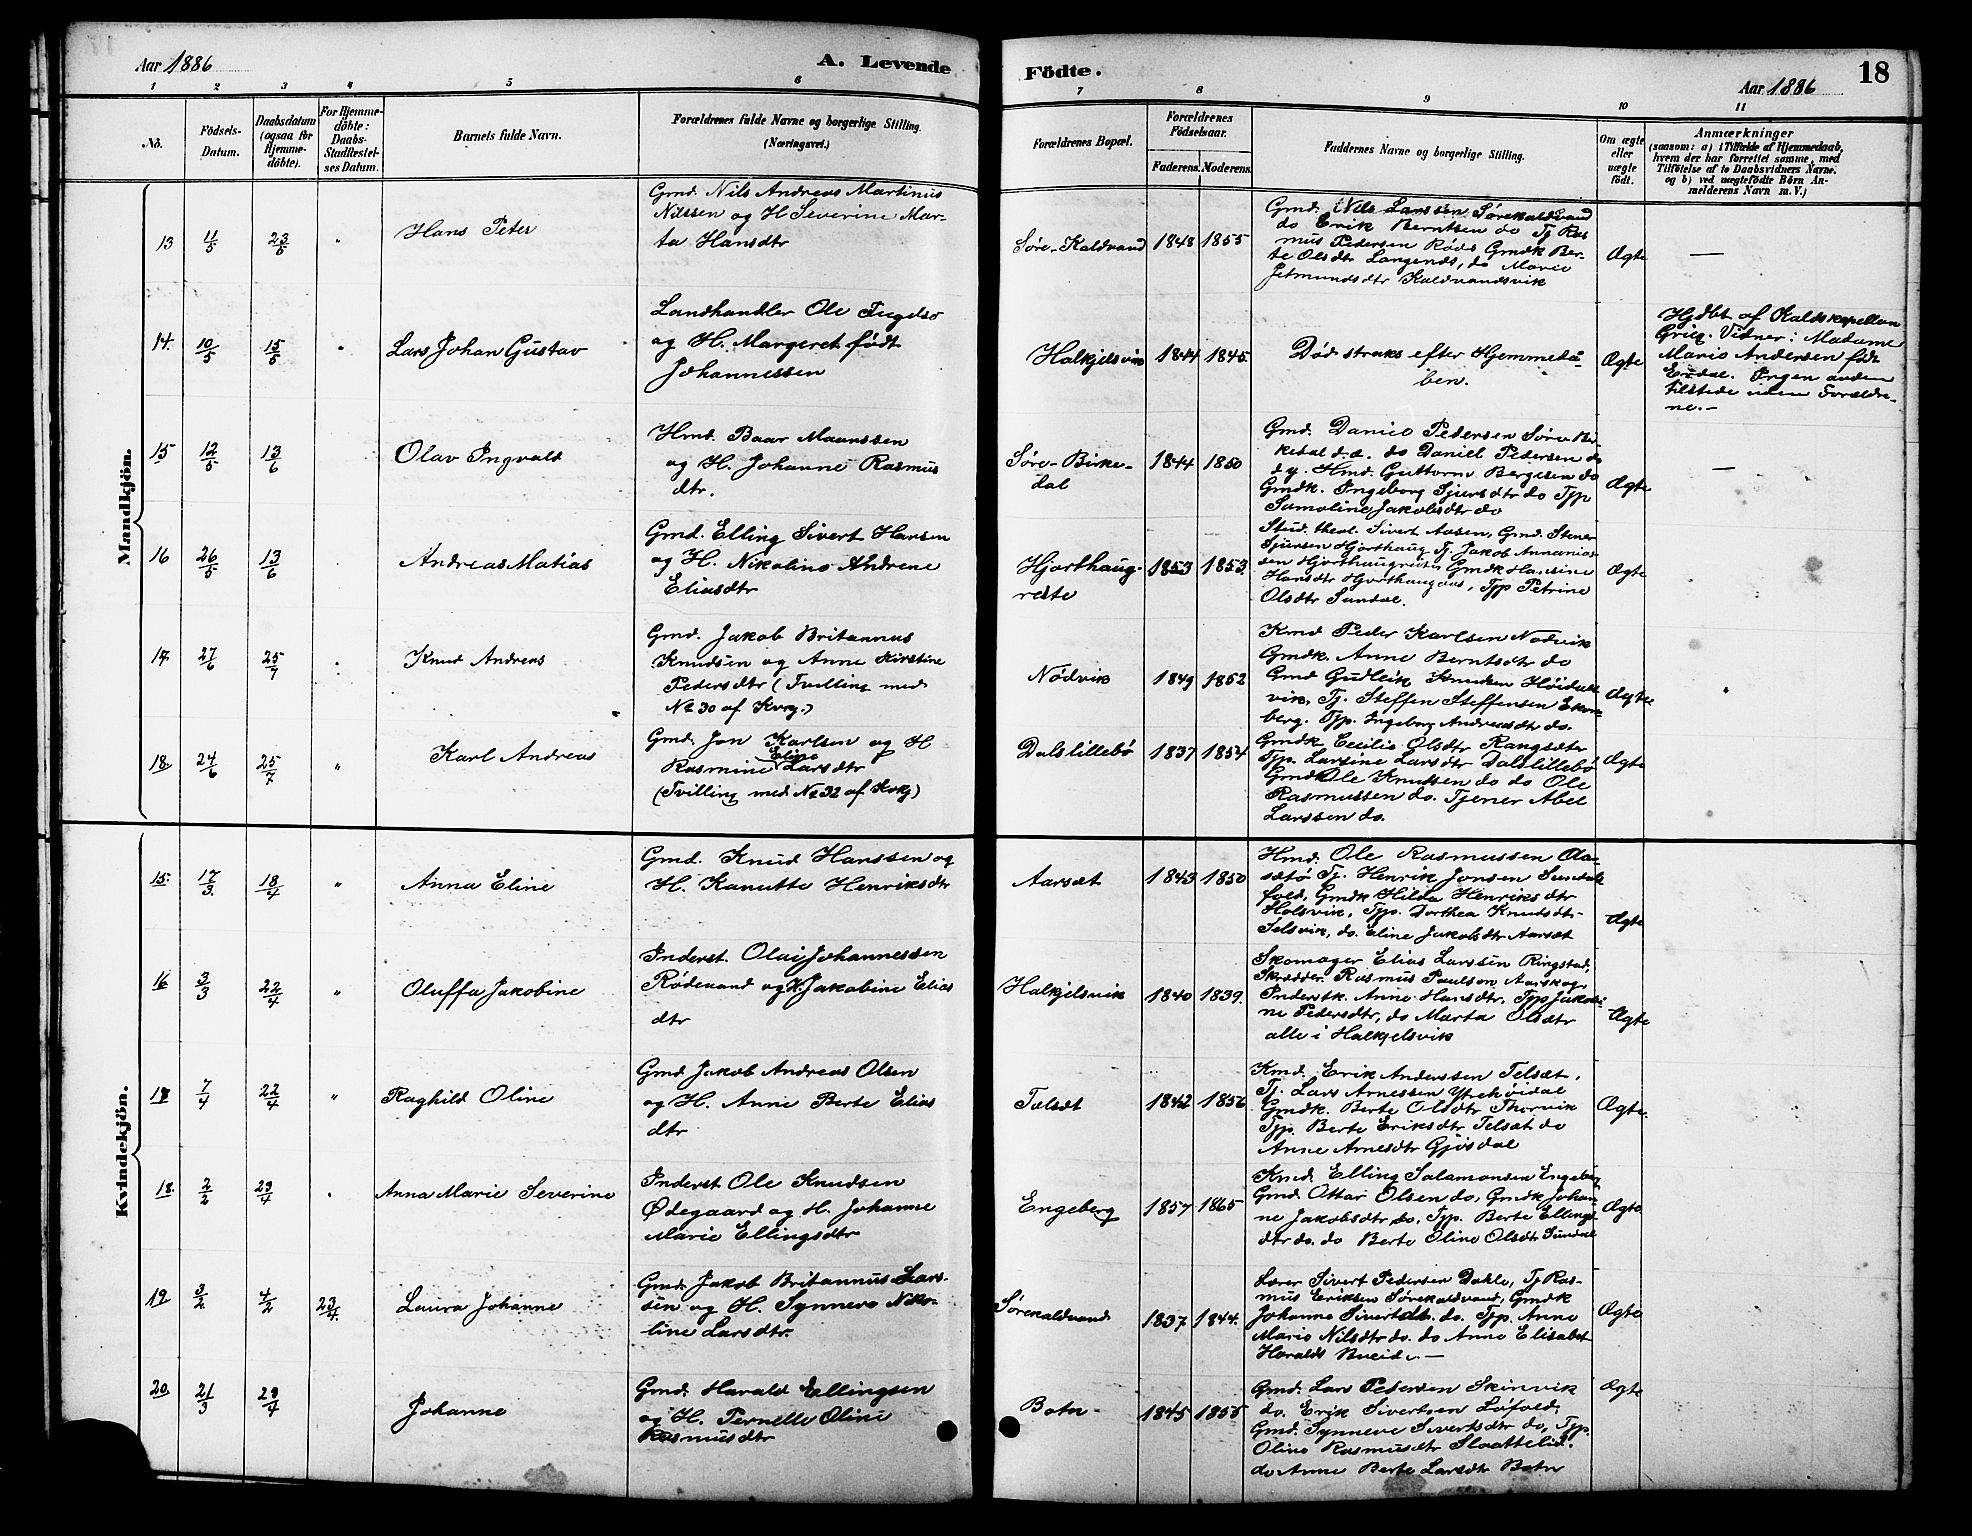 Aar 1886
A. Levende Fødte.
Aar 1886
18
1 2 3 4 5 6 7 8 9 10 11
No.
Födsels-
Datum.
Daabsdatum
(ogsaa för
Hjemme-
döbte).
For Hjemme-
döbte:
Daabs-
Stadfæstel-
ses Datum.
Barnets fulde Navn.
Forældrenes fulde Navne og borgerlige Stilling.
(Næringsvei.)
Forældrenes Bopæl.
Forældrenes
Födselsaar.
Faderens. Moderens.
Faddernes Navne og borgerlige Stilling.
Om ægte
eller
uægte
födt.
Anmærkninger
(saasom: a) i Tilfælde af Hjemmedaab,
hvem der har forrettet samme, med
Tilföielse af to Daabsvidners Navne.
og b) ved uægtefödte Börn An-
melderens Navn m. V.)
Mandkjön.
13 11/5 23/5 " Hans Peter
Gmd. Nils Andreas Martinus
Nilssen og H Severine Mar-
ta Hansdtr
Søre-Kaldvand 1848 1855
Gmd. Nils Larssen Sørekaldvand
do Erik Berntsen do Tj Ras
mus Pedersen Røds Gmdk Ber-
te Olsdtr Langenæs, do Marie
Jetmundsdtr Kaldvandsvik
Ægte —
14. 10/5 15/5 " Lars Johan Gustav
Landhandler Ole
og H. Margeret født
Johannessen
Halkjelsvik 1844 1845
Død straks efter Hjemmedå-
ben.
Ægte
Hjdbt af
Grieg. Vidner: Madame
Marie Andersen født
Ingen anden
tilstede uden Forældre-
ne.-
15 12/5 13/6 Olav Ingvald
Hmd. Baar Maurssen
og H. Johanne Rasmus
dtr.
Søre-Birke-
dal
1844 1850
Gmd. Daniel Pedersen Søre Bir-
kedal d.æ. do Daniel Pedersen do
d y. Hmd. Guttorm Bergesen do
Gmdk. Ingeborg Sjursdtr do Tjp
Samoline Jakobsdtr do
Ægte —
16 26/5 13/6 Andreas Matias
Gmd. Elling Sivert Hansen
og H. Nikoline Andrene
Eliasdtr
Hjorthaug-
reite
1853 1853.
Stud. theol. Sivert Aasen, Gmd. Stener
Sjursen Hjorthaug Tj. Jakob Annanias-
sen Hjorthaugreite, Gmdk Hansine
Hansdtr Hjorthaugaas, Tjp Petrine
Olsdtr Sundal.
Ægte
17 27/6 25/7 Knud Andreas
Gmd. Jakob Britannus
Knudsen og Anne Kirstine
Pedersdtr (Tvilling med
No 30 af Kvkj.)
Nødvik 1849 1852
Kmd Peder Karlsen Nødvik
Gmdk. Anne Berntsdtr do
Gmd Gudleik Knudsen Høidals
vik, Tj. Steffen Steffensen
berg. Tjp. Ingeborg Andreasdtr do.
Ægte
18. 24/6 25/7 " Karl Andreas
Gmd. Jon Karlsen og H
Rasmine Eline Larsdtr
(Tvilling med No 32 af Kvkj)
Dalslillebø 1837 1854
Gmdk Cecilie Olsdtr Rangsæter
Tjp. Larsine Larsdtr Dalslillebø
Gmdk Ole Knudsen do do Ole
Rasmussen do. Tjener Abel
Larssen do.
Ægte
Kvindekjön.
15. 17/3 18/4 " Anna Eline
Gmd. Knud Hanssen og
H. Kanutte Henriksdtr
Aarsæt 1843 1850
Hmd. Ole Rasmussen Aar-
sætø Tj. Henrik Jonsen Sundals
fold, Gmdk Hilda Henriksdtr
Holsvik, Tjp. Dorthea Knudsdtr
do. Eline Jakobsdtr Aarsæt
Ægte
16 3/3 22/4 " Oluffa Jakobine
Inderst. Olai Johannessen
Rødevand og H. Jakobine Elias
dtr
Halkjelsvik 1840 1839.
Skomager Elias Larssen Ringstad,
Skræder. Rasmus Paulsen Aarskog,
Inderstk. Anne Hansdtr, Tjp Jakobi-
ne Pedersdtr, do Marta Olsdtr
alle i Halkjelsvik
Ægte
17 7/4 22/4 " Raghild Oline
Gmd Jakob Andreas Olsen
og H. Anne Berte Elias
dtr
Telsæt 1842 1856
Kmd. Erik Anderssen Telsæt.
Tj. Lars Arnessen Ytrehøidal
Gmdk. Berte Olsdtr Thorvik
Tjp. Berte Eriksdtr Telsæt do
Anne Arnesdtr Gjøsdal
Ægte.
18. 2/2 29/4 Anna Marie Severine
Inderst Ole Knudsen
Ødegaard og H. Johanne
Marie Ellingsdtr
Engeberg 1857 1865
Kmd. Elling Salamonsen Engeberg
Gmd. Ottar Olsen do, Gmdk Johan-
ne Jakobsdtr do, Tjp. Berte Ellings-
dtr do. do Berte Oline Olsdtr Sundal
Ægte
19 3/2 4/2 23/4. Laura Johanne
Gmd. Jakob Britannus Lars-
sen og H. Synneve Niko-
line Larsdtr.
Sørekaldvand 1837 1844.
Lærer Sivert Pedersen Dahle, Tj Ras-
mus Eriksen Sørekaldvand, Gmdk
Johanne Sivertsdtr. do. Tjp. Anne
Marie Nilsdtr do. do Anne Elisabet
Haralds Bueide. —
Ægte
20 21/3 29/4 Johanne
Gmd. Harald Ellingsen
og H. Pernelle Oline
Rasmusdtr
Botn 1845 1855
Gmd. Lars Pedersen Skinvik
do. Erik Sivertsen Løfold,
Gmd. Synneve Sivertsdtr do, Tjp.
Oline Rasmusdtr Slaattelid.
do Anne Berte Larsdtr Botn
Ægte